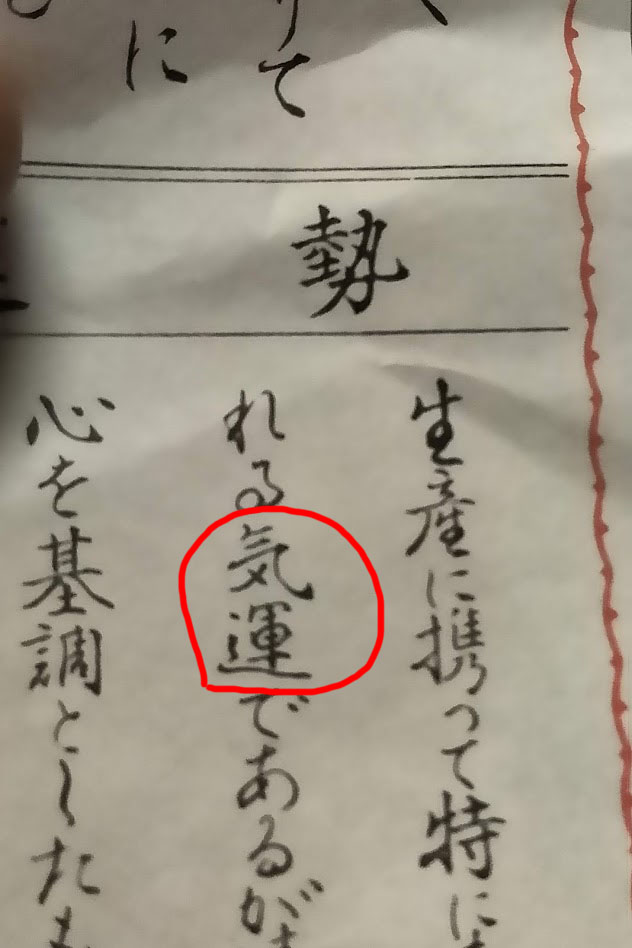 りて
に
勢
生産に携って特に
れる気運であるが
心を基調とした